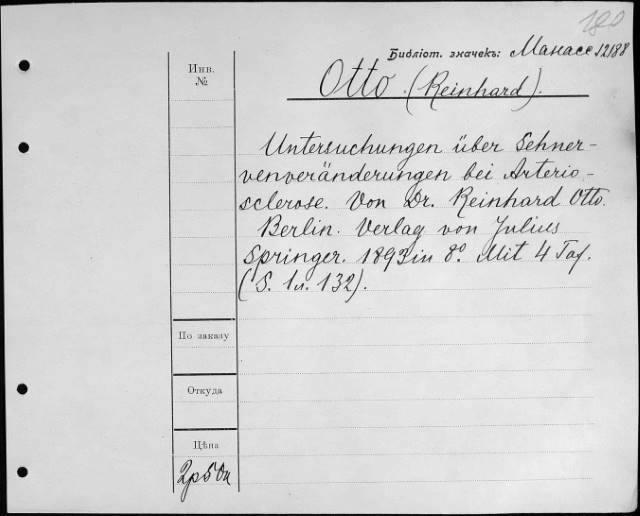 180
Библіот. значекъ: Манасс 12188
Инв.
№
Otto (Reinhard).
Untersuchungen über Sehner-
venveränderungen bei Arterio-
sclerose. Von Dr. Reinhard Otto.
Berlin. Verlag von Julius
Springer. 1893 in 8º. Mit 4 Taf.
(S. 1 л. 132).
По заказу
Откуда
Цѣна
2р50к